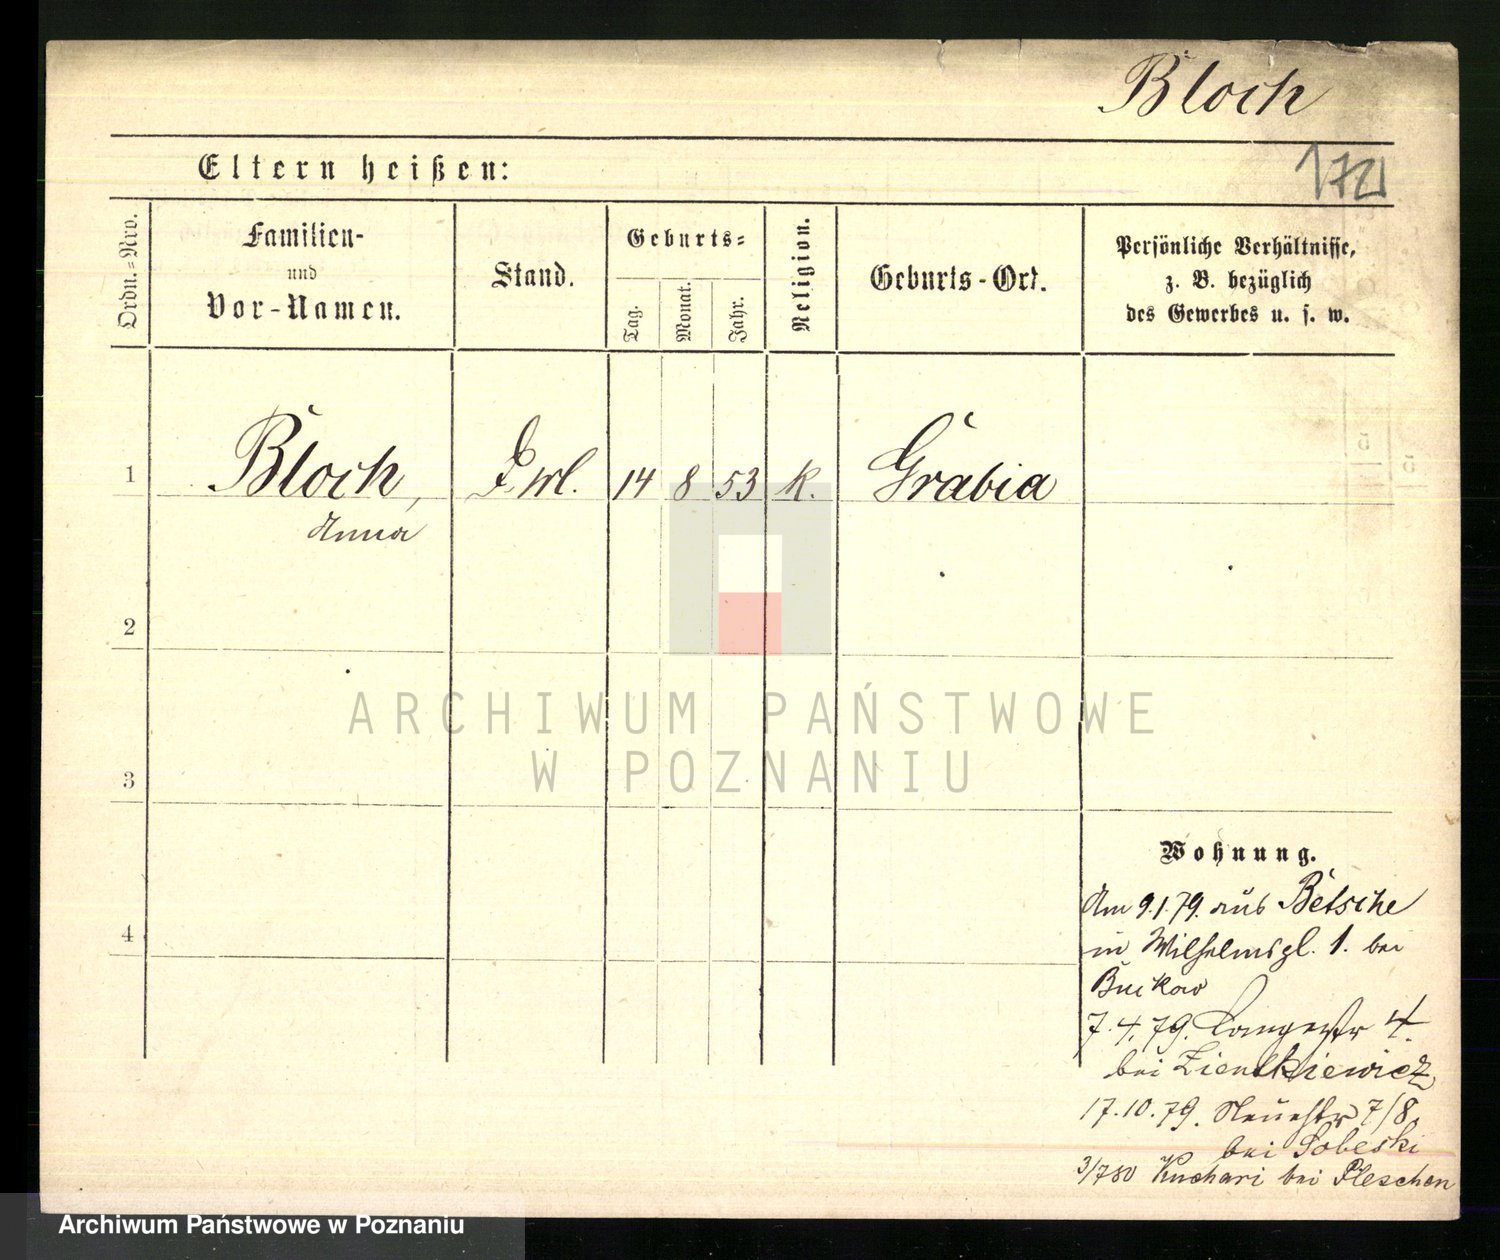 Bloch
172
Eltern heißen:
Ordn.-Nro.
Familien-
und
Vor-Namen.
Stand.
Geburts-
Tag.
Monat.
Jahr.
Religion.
Geburts-Ort.
Persönliche Verhältnisse,
z. B. bezüglich
des Gewerbes u. s. w.
1
Bloch,
Anna
14
8
53
k.
Grabia
2
3
4
ARCHIWUM PAŃSTWOWE
W POZNANIU
Wohnung.
Am 9.1.79. aus Betsche
in Wilhelmspl. 1. bei
Buckow
7.4.79. Langestr 4.
bei Zientkiewicz
17.10.79. Neuestr 7/8.
bei Sobeski
3/780 Kuchari bei Pleschen
Archiwum Państwowe w Poznaniu